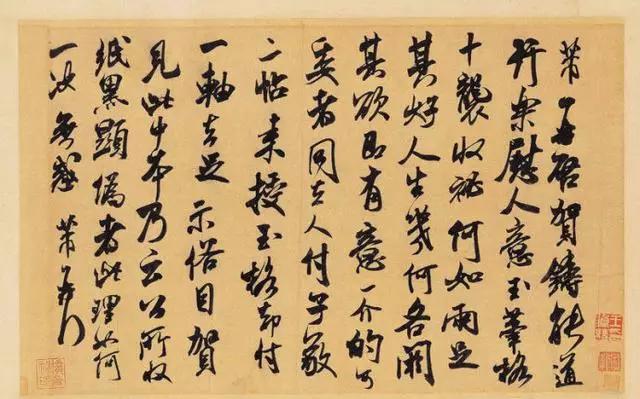 芾再啓賀鑄能道
行樂慰人意玉筆格
十襲收祕何如兩足
其好人生幾何各闗
其欲即有意一介的可
委者同去人付子敬
二帖來授玉格却付
一軸去足示俗目賀
見此中本乃云公所收
紙黑顯偽者此理如何
一決無惑 芾再拜